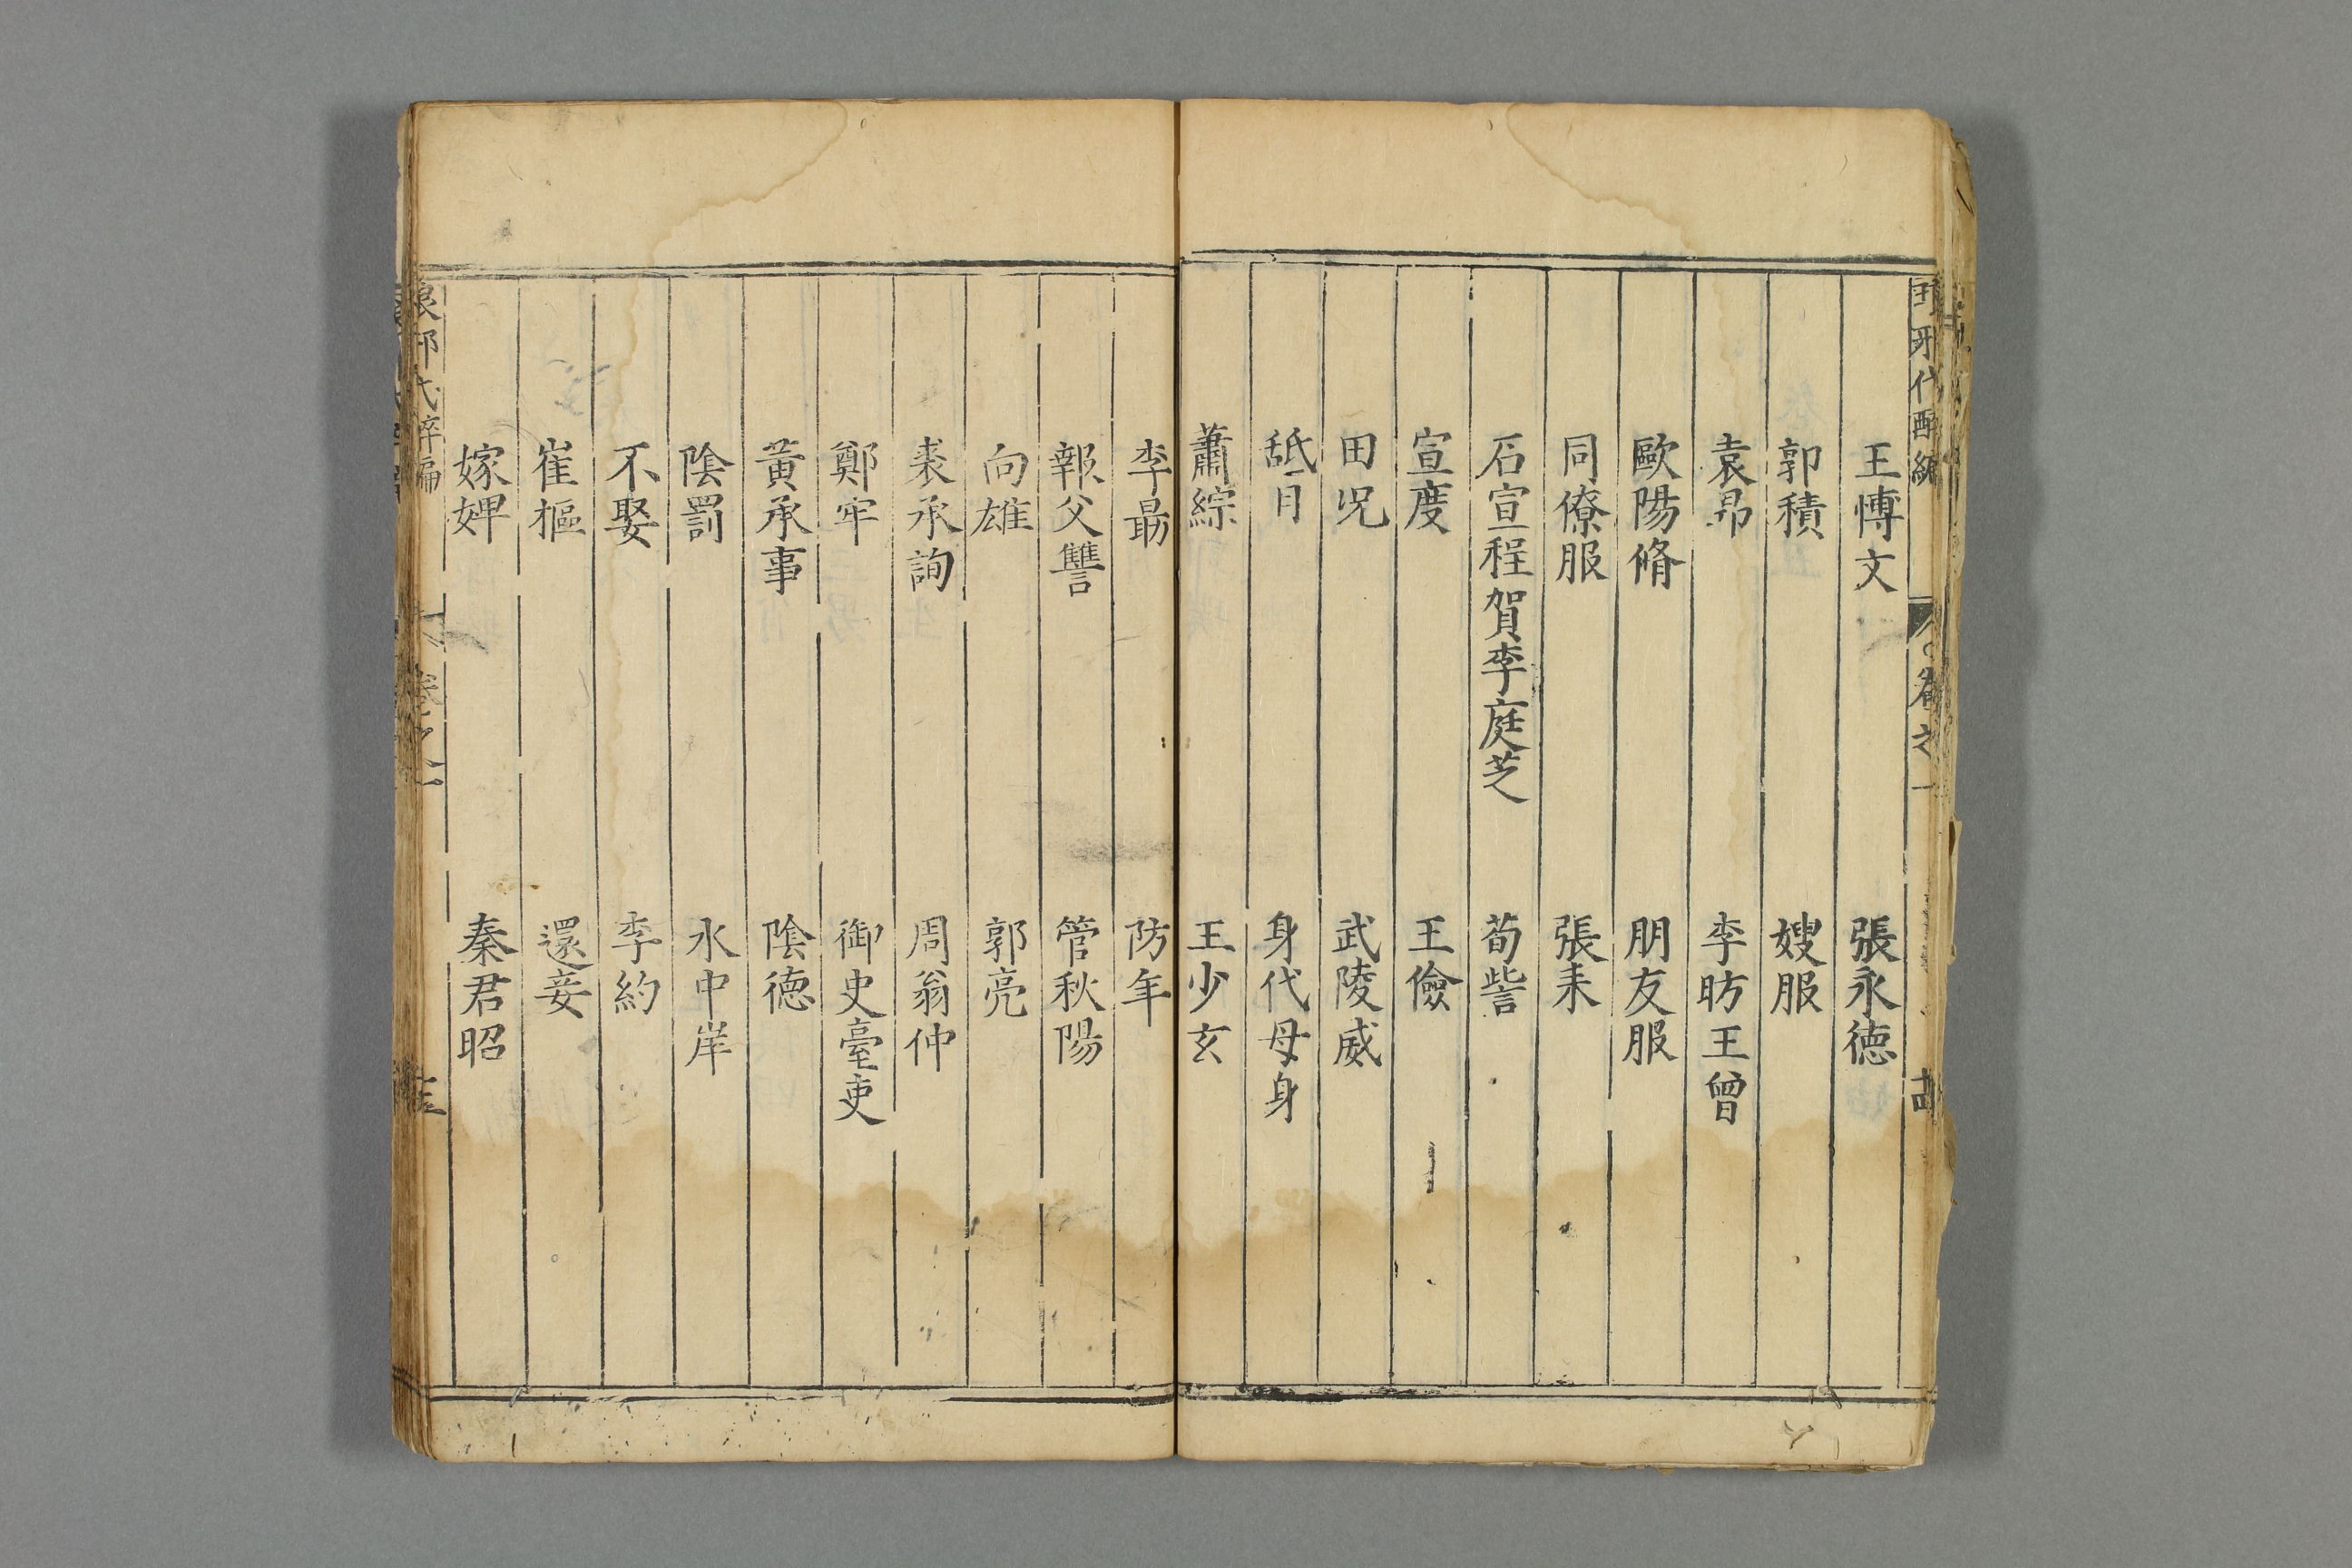 王愽文 張永德
郭積 嫂服
袁昂 李昉王曾
歐陽脩 朋友服
同僚服 張耒
石宣程賀李庭芝 荀訾
宣度 王儉
田况 武陵威
舐目 身代母身
蕭綜 王少玄
李勗 防年
報父讐 管秋陽
向雄 郭亮
裴承詢 周翁仲
鄭牢 御史臺吏
黃承事 陰德
陰罰 水中岸
不娶 李約
崔樞 還妾
嫁婢 秦君昭